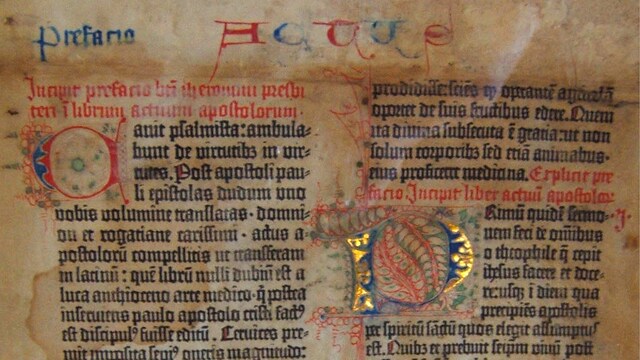 Prefacio
Actus
Incipit prefacio bti iheronimi presbi
teri ī librum actuum apostolorum.
Canit psalmista: ambula-
bunt de virtutibꝫ in vir-
tutes. Post apostoli pau-
li epistolas dudum uno
vobis volumine translatas · domni-
on et rogatiane carissimi · actus a-
postolorū compellitis ut transferam
in latinū: quē librū nulli dubiū est a
luca anthioceno arte medico · q̄ postea
inserviens paulo apostolo cristi factꝰ
est discipulꝰ fuisse editū. Cervices pre-
mit imposita sepiꝰ oneris magnitudo:
prodidisse: sciēs
oportet de suis fructibus edere. Quem
ita divina subsecuta ē gratia: ut non
solum corporibꝫ sed etiā animabus
eius proficeret medicina. Explicit pre-
facio Incipit liber actuū apostolor
Primū quidē sermo- I·
nem feci de omībus
o theophile q̄ cepit
ihesus facere et doce-
re: usqꝫ ī diem qua
precipiēs apostolis
per spiritū sāctū quos elegit assumptꝰ
est. Quibꝫ et prebuit seipm̄ vivū post